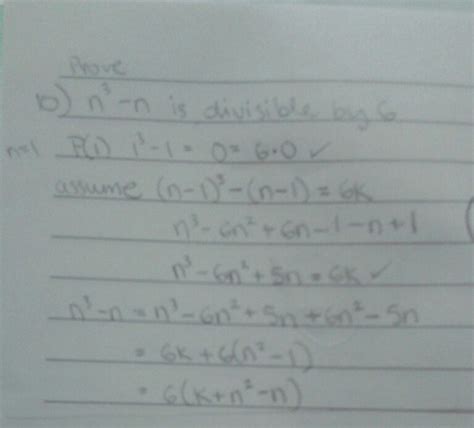 Prove
10) n³-n is divisible by 6
n=1 P(1) 1³-1 = 0 = 6·0 ✓
assume (n-1)³-(n-1) = 6k
n³-6n²+6n-1-n+1
n³-6n²+5n = 6k ✓
n³-n = n³-6n²+5n+6n²-5n
= 6k+6(n²-1)
= 6(k+n²-n)